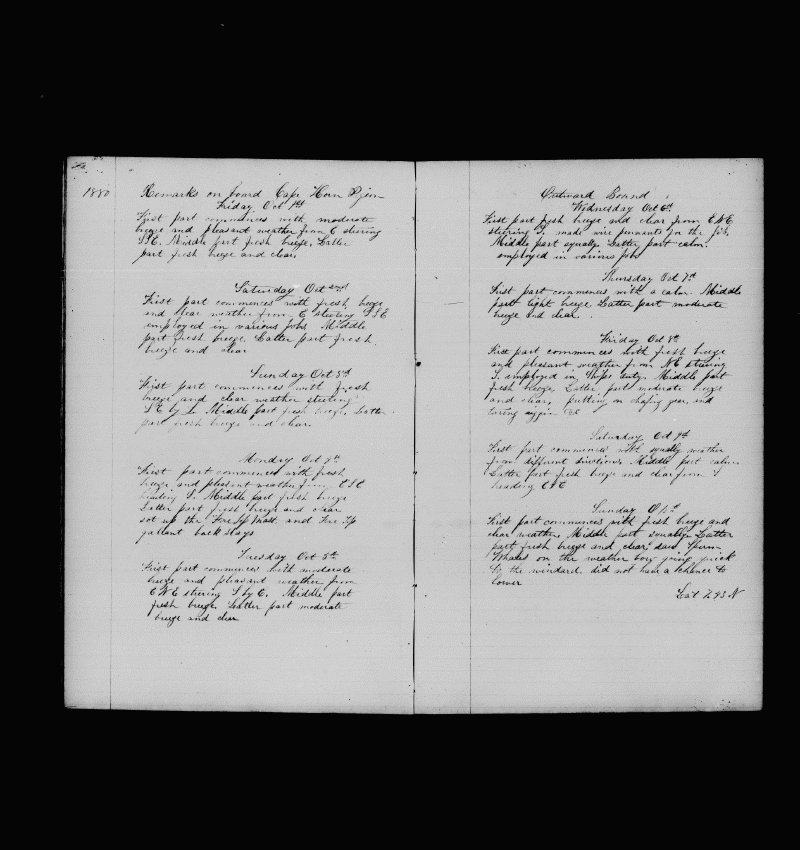 1880
Remarks on board Cape Horn Pigeon
Friday Oct 1st
First part commences with moderate
breeze and pleasant weather from E steering
S.S.E. Middle part fresh breeze, Latter
part fresh breeze and clear.
Saturday Oct 2nd
First part commences with fresh breeze
and clear weather from E steering S S E
employed in various jobs Middle
part fresh breeze. Latter part fresh
breeze and clear
Sunday Oct 3rd
First part commences with fresh
breeze and clear weather steering
S E by S. Middle part fresh breeze. Latter
part fresh breeze and clear.
Monday Oct 4th
First part commences with fresh
breeze and pleasant weather from E S E
heading S. Middle part fresh breeze
Latter part fresh breeze and clear
set up the Fore Top Mast and Fore Top
gallant back stays
Tuesday Oct 5th
First part commences with moderate
breeze and pleasant weather from
E N E steering S by E. Middle part
fresh breeze Latter part moderate
breeze and clear
Outward Bound
Wednesday Oct 6th
First part fresh breeze and clear from E N E
steering S. made wire pennants for the jib.
Middle part squally. Latter part calm.
employed in various jobs
Thursday Oct 7th
First part commences with a calm. Middle
part light breeze Latter part moderate
breeze and clear.
Friday Oct 8th
First part commences with fresh breeze
and pleasant weather from N E steering
S. employed in Ships duty. Middle part
fresh breeze, Latter part moderate breeze
and clear, putting on chafing gear, and
Saturday Oct 9th
First part commences with squally weather
from different directions Middle part calm.
Latter part fresh breeze and clear from
heading E S E
Sunday
First part commences with fresh breeze and
clear weather, Middle part squally. Latter
part fresh breeze and clear, saw Sperm
Whales on the weather bow going quick
to the windard. did not have a chance to
lower
Lat 7.43 N